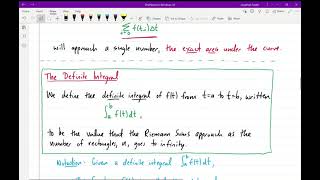 Σ f(tᵢ)Δt
will approach a single number, the exact area under the curve.
The Definite Integral
We define the definite integral of f(t) from t=a to t=b, written
∫ₐᵇ f(t)dt,
to be the value that the Riemann Sums approach as the
number of rectangles, n, goes to infinity.
Notation: Given a definite integral ∫ₐᵇ f(t)dt,